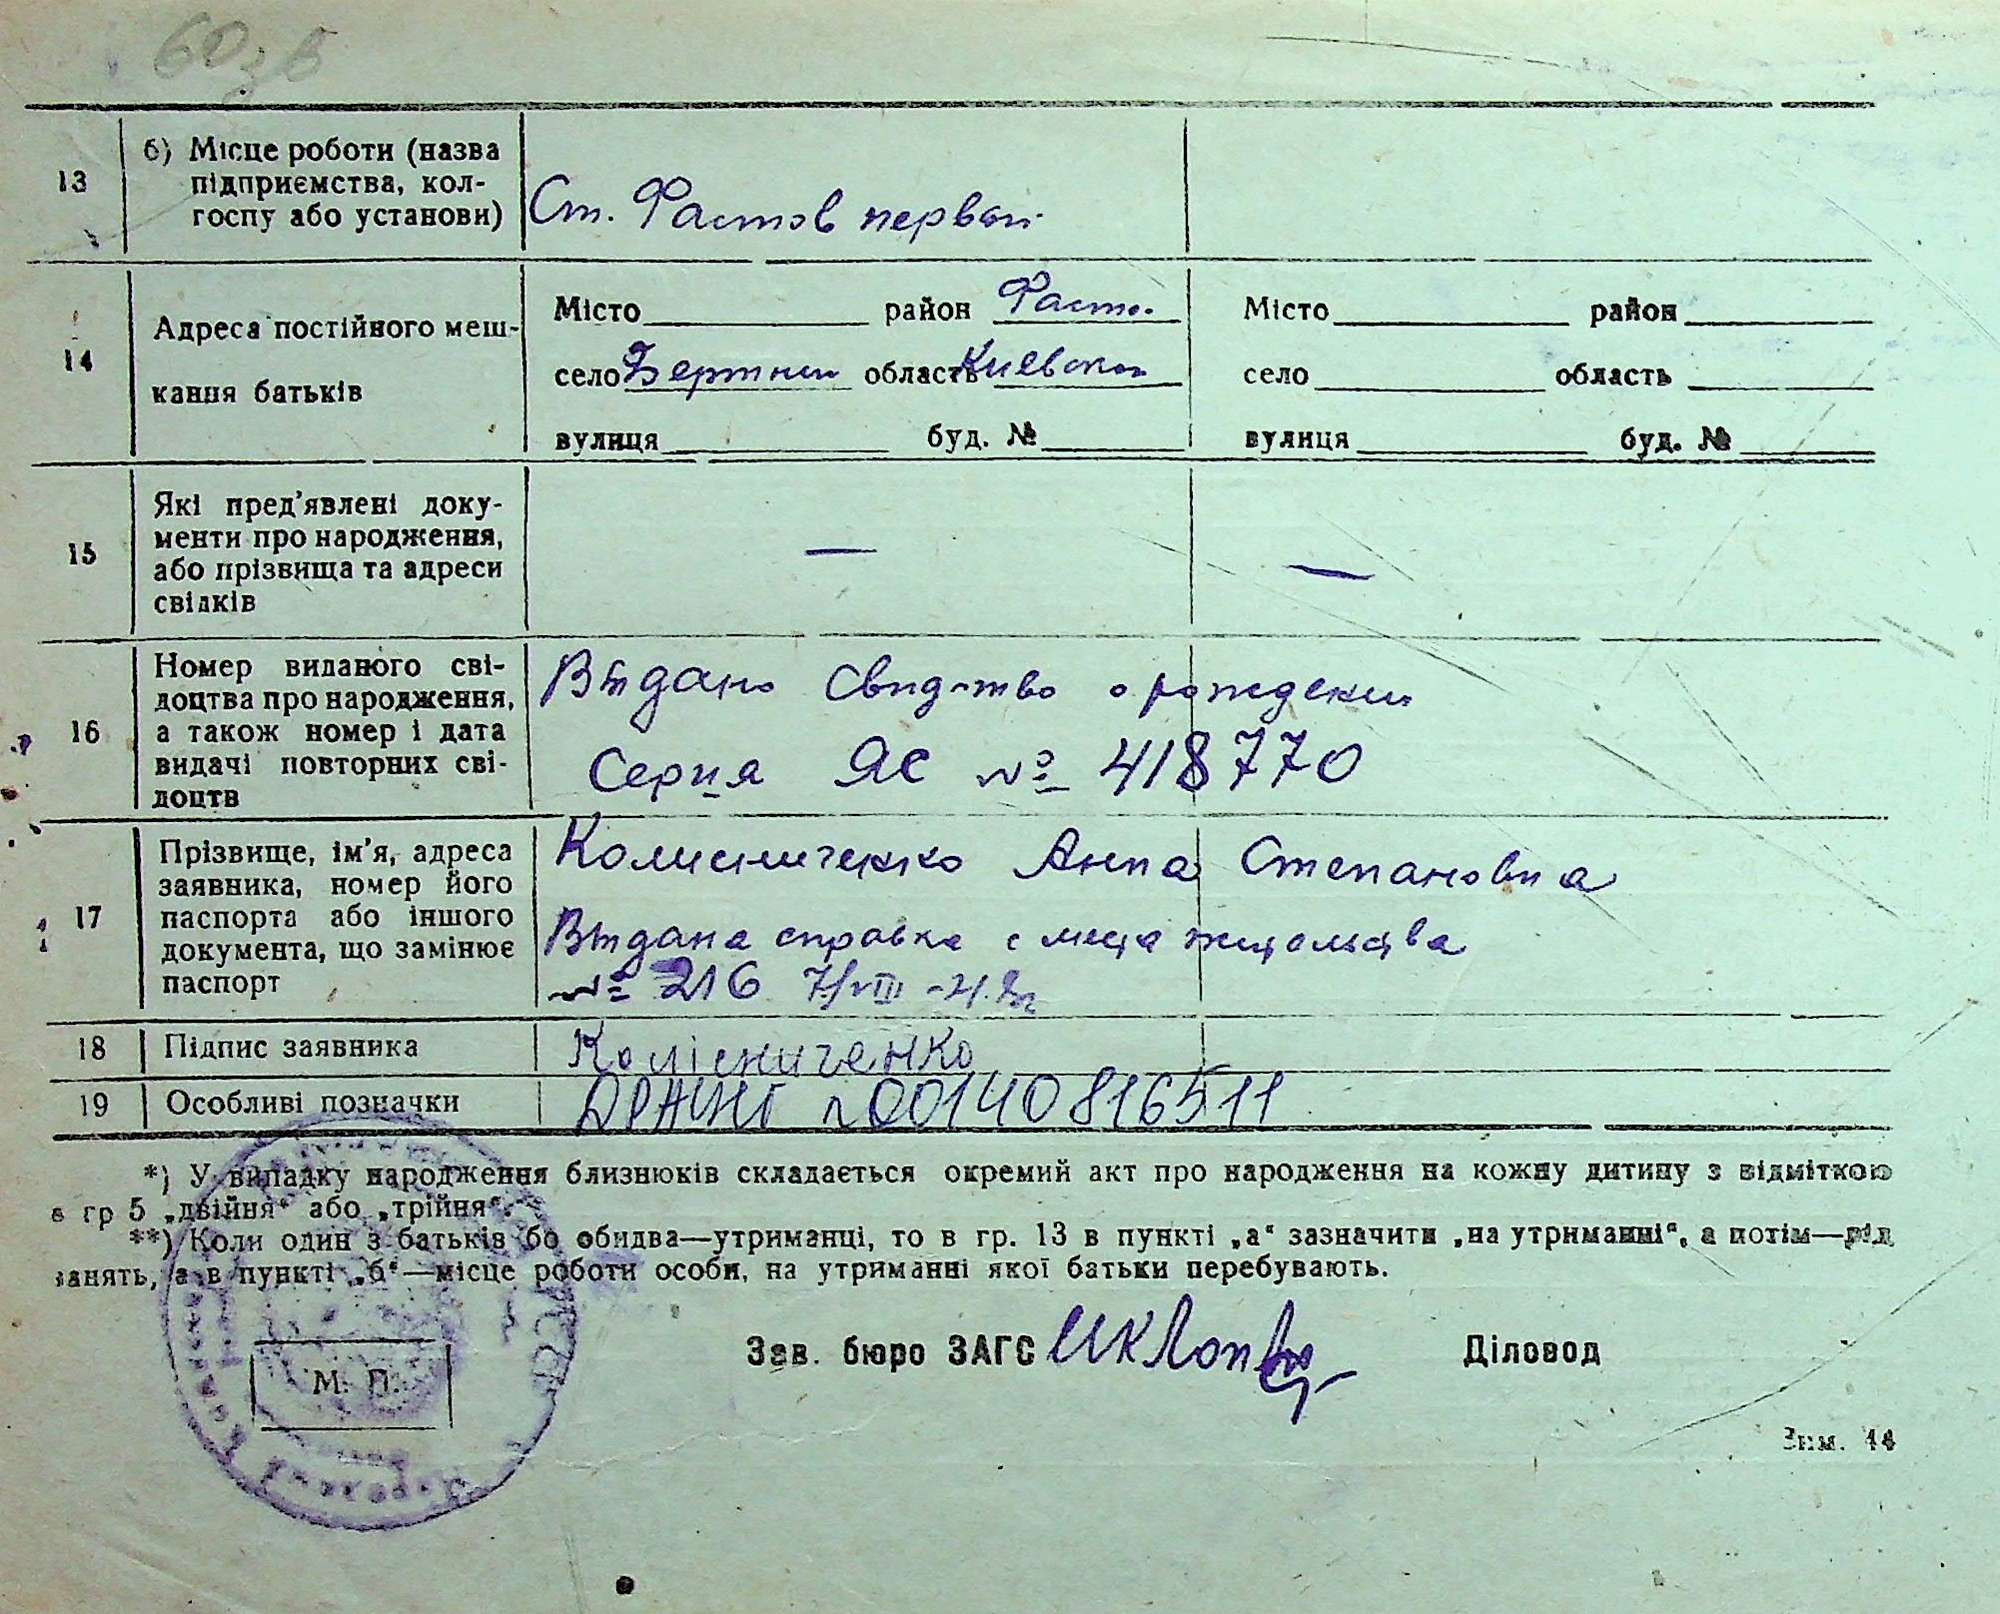 13 б) Місце роботи (назва
підприємства, кол-
госпу або установи) Ст. Фастов первый
14 Адреса постійного меш-
кання батьків
Місто район Фаст. Місто район
село область Киевская село область
вулиця буд. № вулиця буд. №
15 Які пред'явлені доку-
менти про народження,
або прізвища та адреси
свідків — —
16 Номер виданого сві-
доцтва про народження,
а також номер і дата
видачі повторних сві-
доцтв
Выдано Свид-тво о рождении
Серия ЯС № 418770
17 Прізвище, ім'я, адреса
заявника, номер його
паспорта або іншого
документа, що замінює
паспорт
Колисниченко Анна Степановна
Выдана справка с места жительства
№ 216 7/VIII
18 Підпис заявника Колісниченко
19 Особливі позначки ДРАЦСГ 00140816511
*) У випадку народження близнюків складається окремий акт про народження на кожну дитину з відміткою
в гр 5 „двійня“ або „трійня“.
**) Коли один з батьків бо обидва—утриманці, то в гр. 13 в пункті „а“ зазначити „на утриманні“, а потім—рід
занять, а в пункті „б“—місце роботи особи, на утриманні якої батьки перебувають.
Зав. бюро ЗАГС Діловод
М. П.
Зим. 44